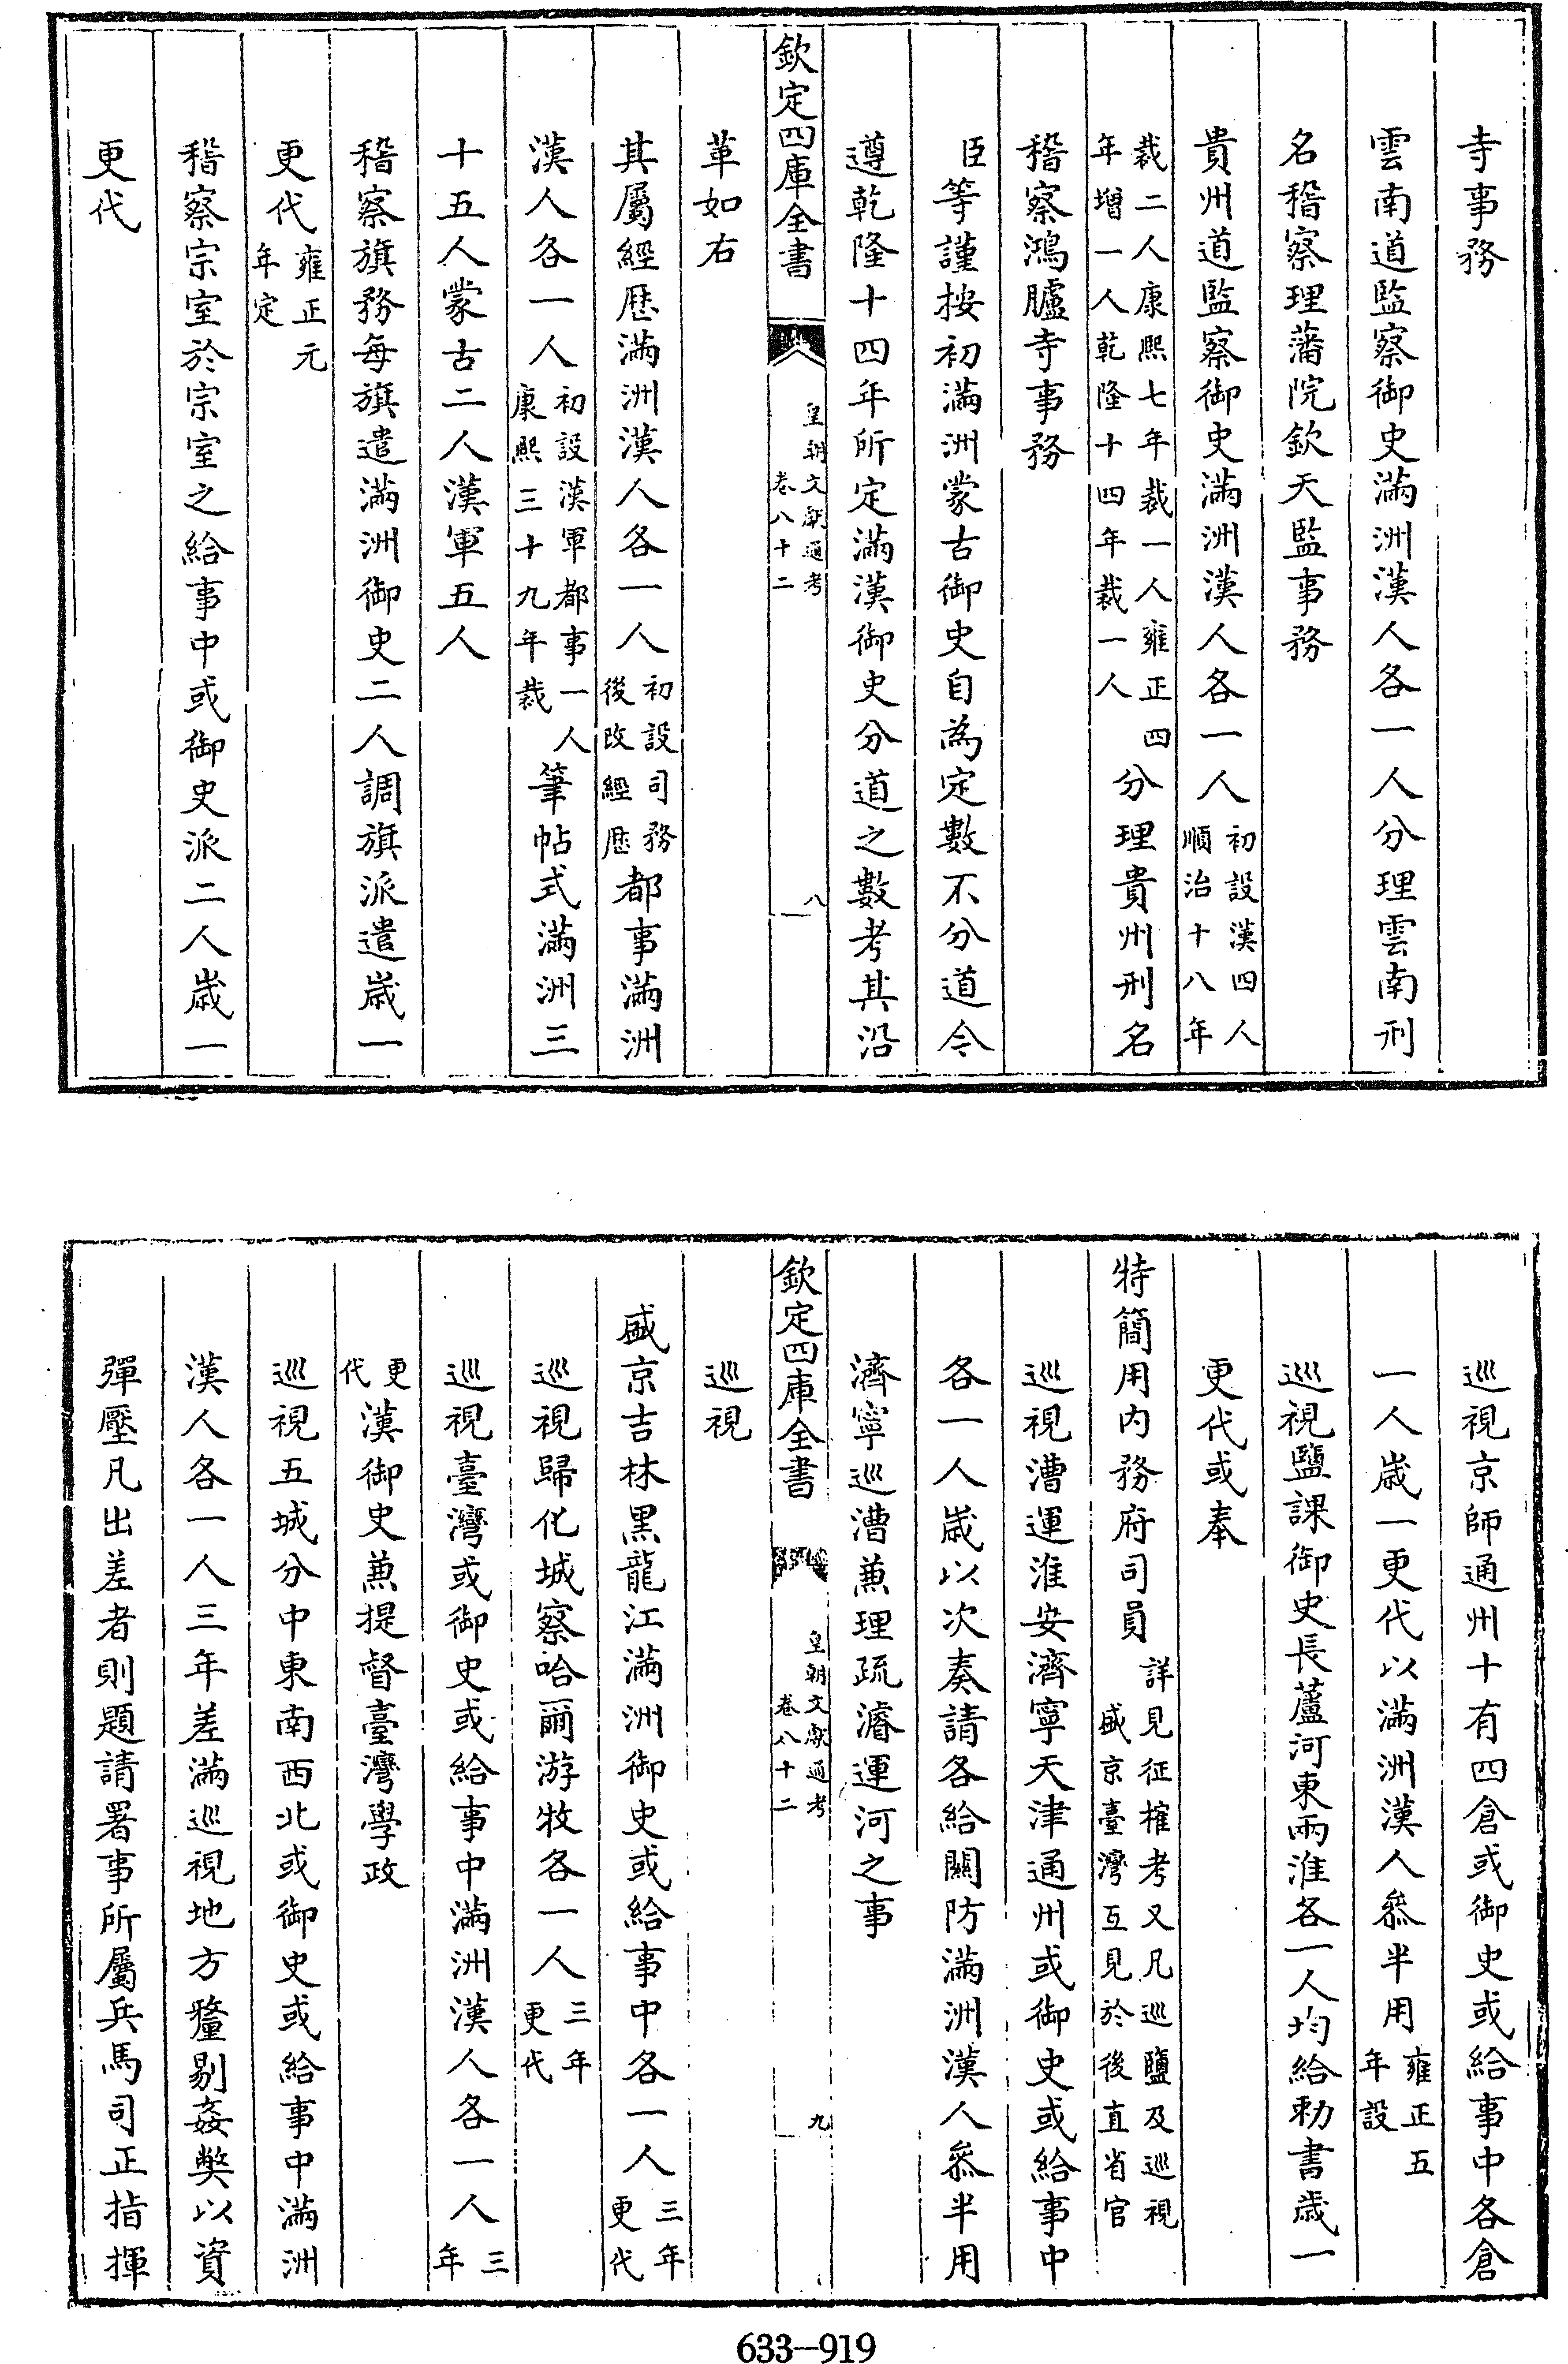 寺事務
雲南道監察御史滿洲漢人各一人分理雲南刑
名稽察理藩院欽天監事務
貴州道監察御史滿洲漢人各一人初設漢四人順治十八年
裁二人康熙七年裁一人雍正四年增一人乾隆十四年裁一人分理貴州刑名
稽察鴻臚寺事務
臣等謹按初滿洲蒙古御史自為定數不分道今
遵乾隆十四年所定滿漢御史分道之數考其沿
欽定四庫全書 皇朝文獻通考 卷八十二 八
革如右
其屬經歷滿洲漢人各一人初設司務後改經歷都事滿洲
漢人各一人初設漢軍都事一人康熙三十九年裁筆帖式滿洲三
十五人蒙古二人漢軍五人
稽察旗務每旗遣滿洲御史二人調旗派遣歲一
更代雍正元年定
稽察宗室於宗室之給事中或御史派二人歲一
更代
巡視京師通州十有四倉或御史或給事中各倉
一人歲一更代以滿洲漢人叅半用雍正五年設
巡視鹽課御史長蘆河東兩淮各一人均給勅書歲一
更代或奉
特簡用內務府司員詳見征榷考又凡巡鹽及巡視盛京臺灣互見於後直省官
巡視漕運淮安濟寧天津通州或御史或給事中
各一人歲以次奏請各給關防滿洲漢人叅半用
濟寧巡漕兼理疏濬運河之事
欽定四庫全書 皇朝文獻通考 卷八十二 九
巡視
盛京吉林黑龍江滿洲御史或給事中各一人三年更代
巡視歸化城察哈爾游牧各一人三年更代
巡視臺灣或御史或給事中滿洲漢人各一人三年
更代漢御史兼提督臺灣學政
巡視五城分中東南西北或御史或給事中滿洲
漢人各一人三年差滿巡視地方釐剔姦弊以資
彈壓凡出差者則題請署事所屬兵馬司正指揮
633-919